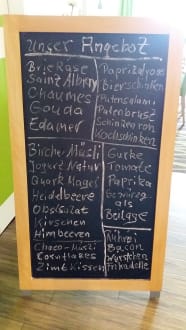 Unser Angebot
Brie Käse
Sainz Albray
Chaumes
Gouda
Edamer
Paprikalyoner
Bierschinken
Putensalami
Putenbrust
Schinken roh
Kochschinken
Bircher Müsli
Jogurt Natur
Quark Mager
Heidelbeere
Obstsalat
Kirschen
Himbeeren
Choco-Müsli
Cornflakes
Zimt Kissen
Gurke
Tomate
Paprika
Gewürz
als
Beilage
Rührei
Bacon
Würstchen
Frikadelle